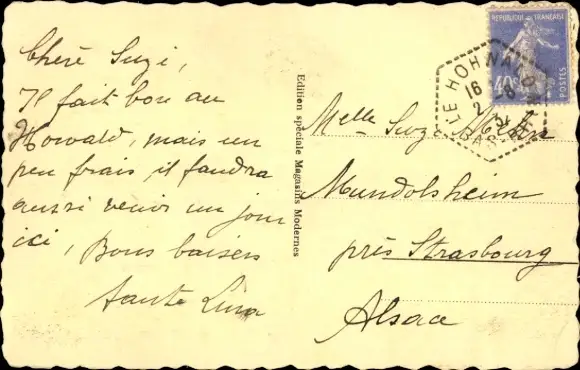 Chère Suzi,
Il fait bon au
Howald, mais un
peu frais, il faudra
aussi venir un jour
ici, Bons baisers
tante Lina
Edition spéciale Magasins Modernes
REPUBLIQUE FRANÇAISE
40c
POSTES
LE HOHWALD
16
2 -8
BAS-RHIN
Melle Suzi
Mundolsheim
près Strasbourg
Alsace